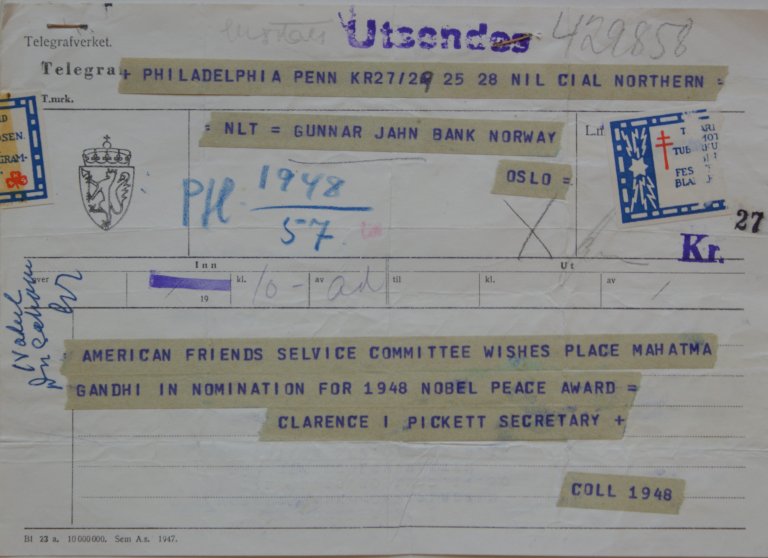 Utsendes 429858
Telegrafverket.
Telegra
+ PHILADELPHIA PENN KR27/29 25 28 NIL CIAL NORTHERN =
T.mrk.
= NLT = GUNNAR JAHN BANK NORWAY
OSEN.
GRAM-
OSLO =
TUB
FES
BLA
1948
57
27
Kr.
Inn
Ut
kl.
10 -
av
til
kl.
av
19
AMERICAN FRIENDS SELVICE COMMITTEE WISHES PLACE MAHATMA
GANDHI IN NOMINATION FOR 1948 NOBEL PEACE AWARD =
CLARENCE I PICKETT SECRETARY +
COLL 1948
Bl 23 a. 10 000 000. Sem A.s. 1947.